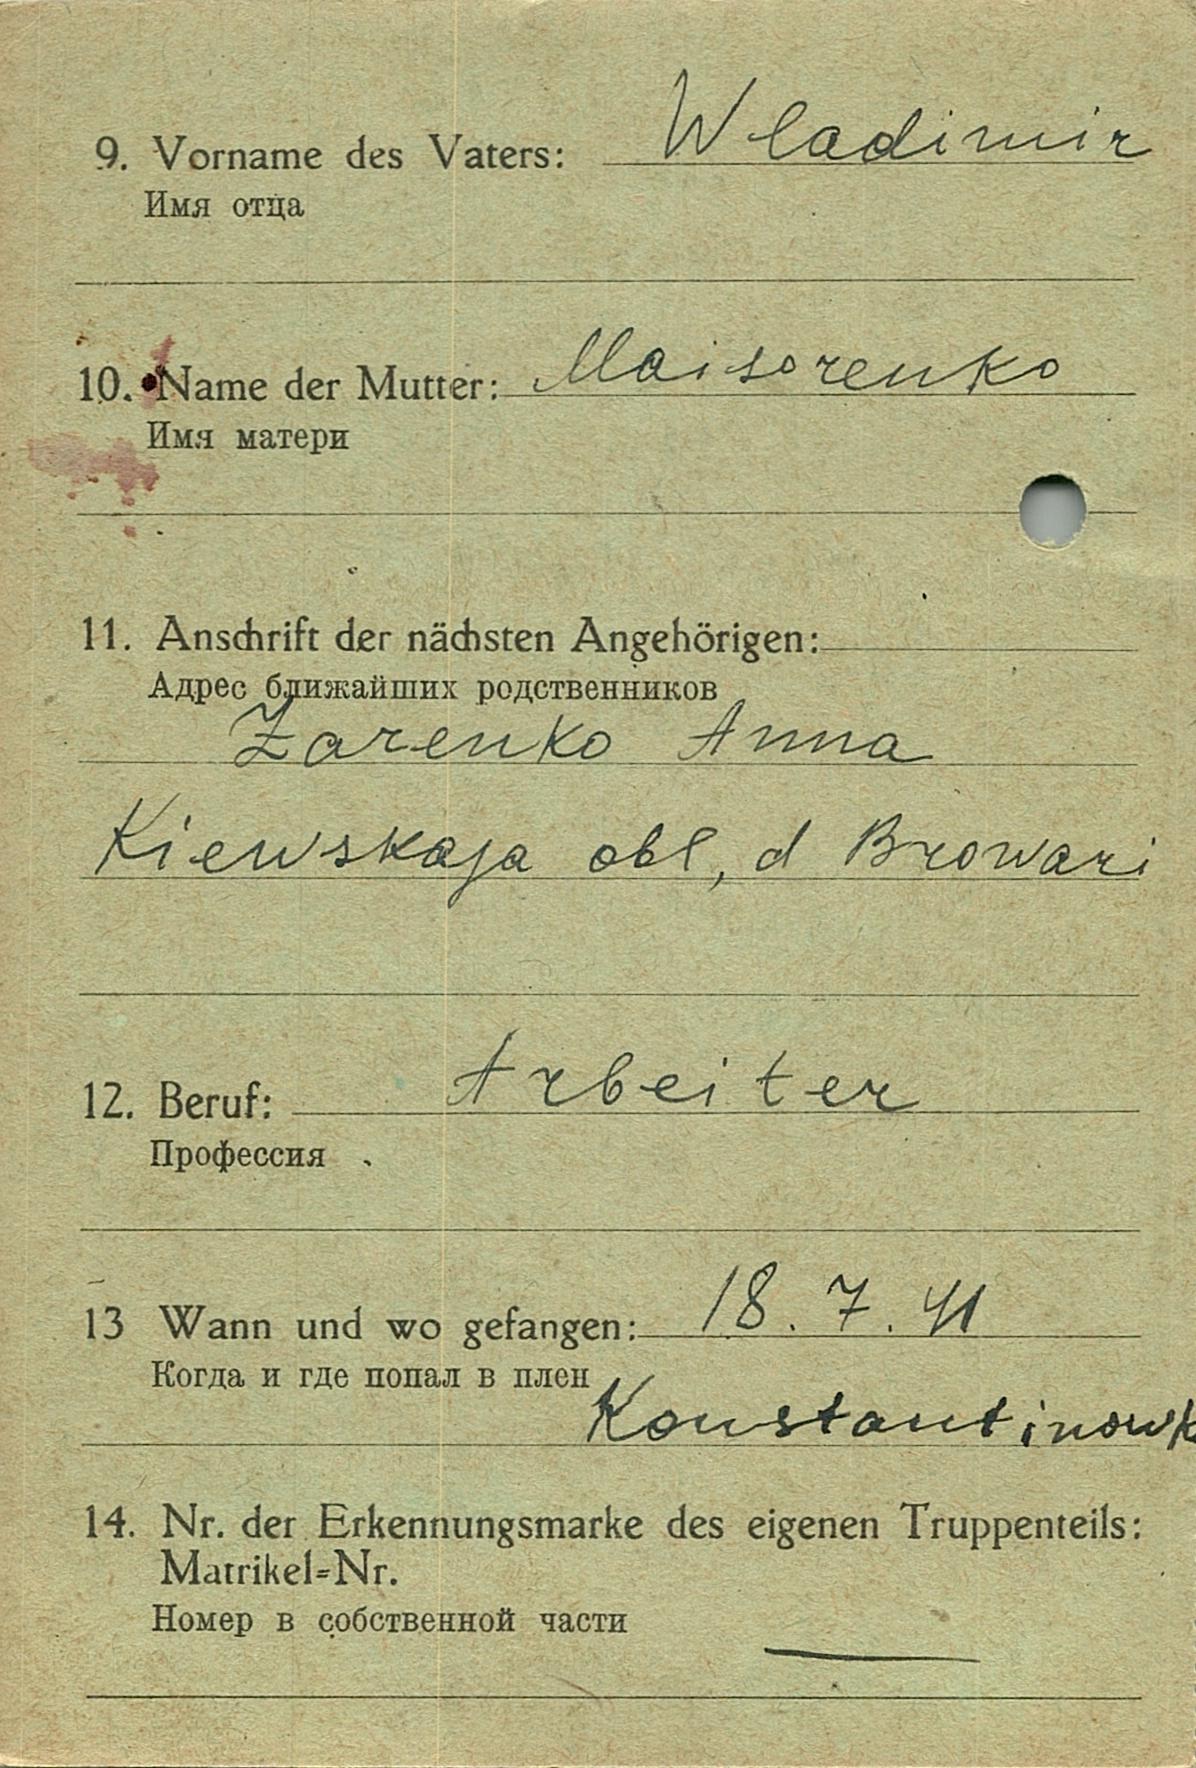 9. Vorname des Vaters: Wladimir
Имя отца
10. Name der Mutter: Maisorenko
Имя матери
11. Anschrift der nächsten Angehörigen:
Адрес ближайших родственников
Zarenko Anna
Kiewskaja obl, d Browari
12. Beruf: Arbeiter
Профессия
13 Wann und wo gefangen: 18. 7. 41
Когда и где попал в плен
Konstantinowk
14. Nr. der Erkennungsmarke des eigenen Truppenteils:
Matrikel=Nr.
Номер в собственной части